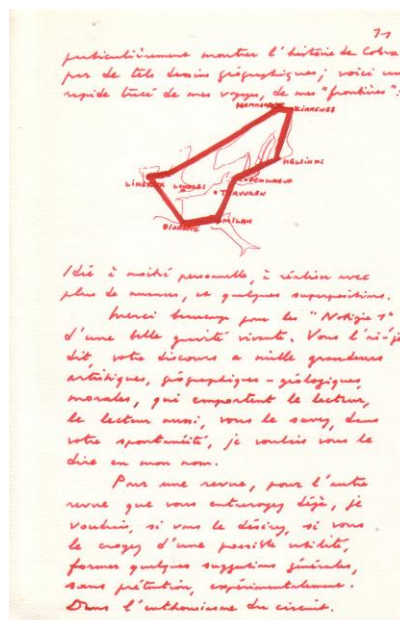 7-
particulièrement montrer l'histoire de Cobra
par de tels dessins géographiques; voici un
rapide tracé de mes voyages, de mes "frontières":
HAMMERFEST KIRKENES
HELSINKI
COPENHAGUE
LIMERICK LONDRES TERVUREN
BIARRITZ MILAN
Idée à moitié personnelle, à réaliser avec
plus de nuances, et quelques superpositions.
Merci beaucoup pour les "Notizie 1"
d'une belle gravité vivante. Vous l'ai-je
dit, votre discours a mille grandeurs
artistiques, géographiques - géologiques,
morales, qui emportent le lecteur,
le lecteur aussi, vous le savez, dans
votre spontanéité, je voulais vous le
dire en mon nom.
Pour une revue, pour l'autre
revue que vous envisagez déjà, je
voudrais, si vous le désirez, si vous
le croyez d'une possible utilité,
former quelques suggestions générales,
sans prétention, expérimentalement.
Dans l'enthousiasme du circuit.